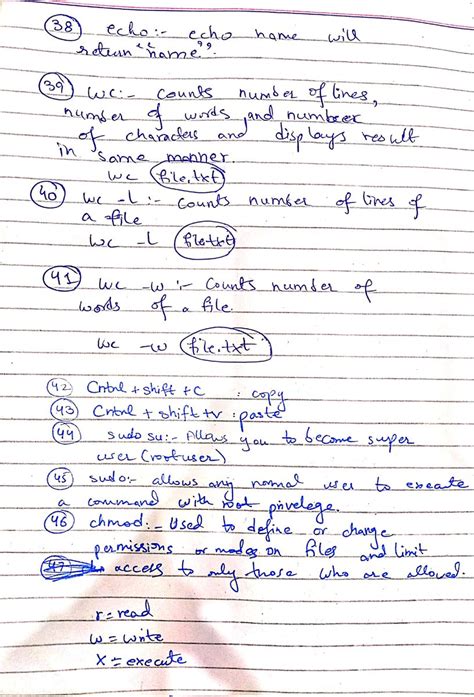 38 echo:- echo name will
return "name".
39 wc:- counts number of lines,
number of words, and number
of characters and displays result
in same manner.
wc file.txt
40 wc -l :- counts number of lines of
a file
wc -l file.txt
41 wc -w :- Counts number of
words of a file.
wc -w file.txt
42 Cntrl + shift + C : copy
43 Cntrl + shift + v : paste
44 sudo su:- Allows you to become super
user (root user)
45 sudo:- allows any normal user to execute
a command with root privelege.
46 chmod:- Used to define or change
permissions or modes on files and limit
access to only those who are allowed.
r = read
w = write
x = execute